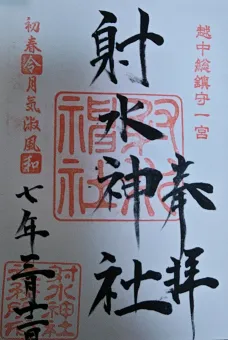 越中総鎮守一宮
奉拝
射水神社
初春令月気淑風和
七年三月十二日
射水神社